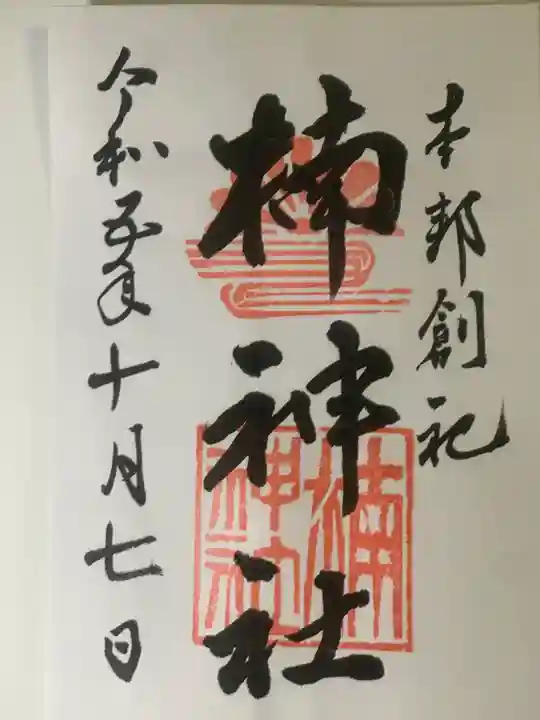 本邦創祀
楠神社
令和五年十月七日
楠
神社